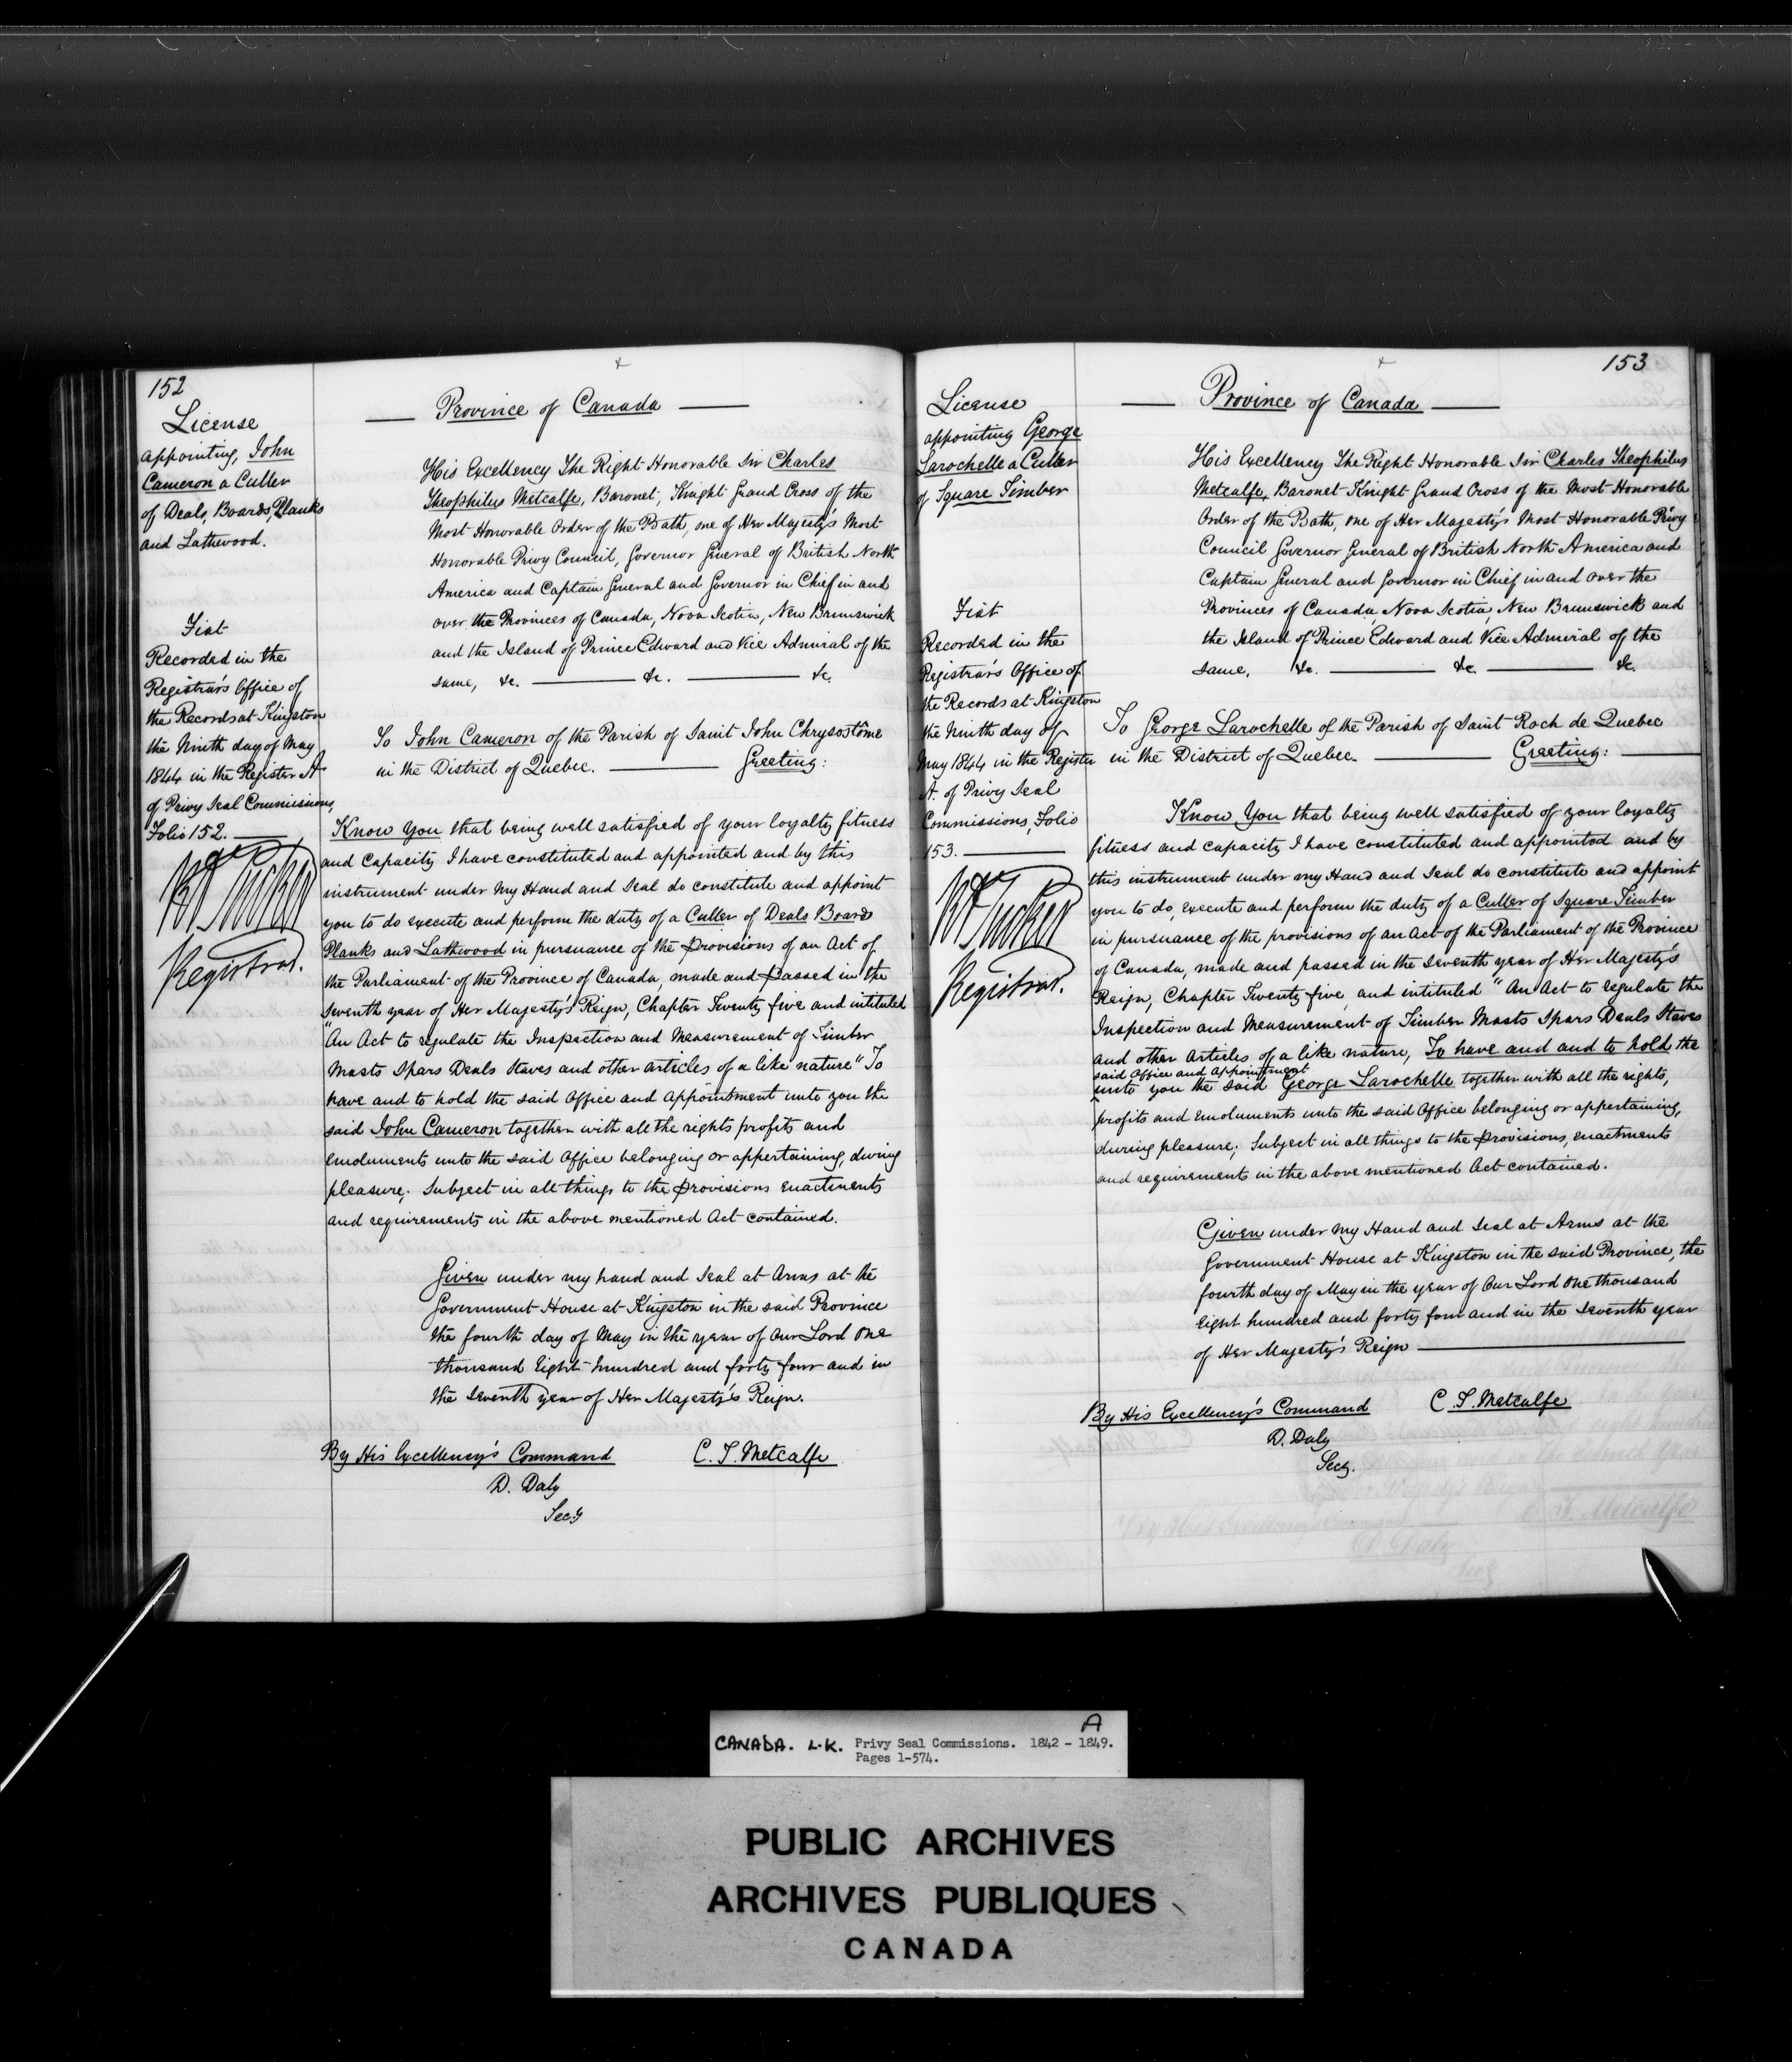 152
License
appointing, John
Cameron a Culler
of Deals, Boards, Planks
and Lathwood.
Fiat
Recorded in the
Registrar's Office of
the Records at Kingston
the Ninth day of May
1844 in the Register A
of Privy Seal Commissions,
Folio 152.
Tucker
Registrar.
Province of Canada
His Excellency The Right Honorable Sir Charles
Theophilus Metcalfe, Baronet, Knight Grand Cross of the
Most Honorable Order of the Bath, one of Her Majesty's Most
Honorable Privy Council, Governor General of British North
America and Captain General and Governor in Chief in and
over the Provinces of Canada, Nova Scotia, New Brunswick
and the Island of Prince Edward and Vice Admiral of the
same, &c. &c. &c.
To John Cameron of the Parish of Saint John Chrysostôme
in the District of Quebec. Greeting:
Know You that being well satisfied of your loyalty fitness
and Capacity I have constituted and appointed and by this
instrument under my Hand and Seal do constitute and appoint
you to do execute and perform the duty of a Culler of Deals Boards
Planks and Lathwood in pursuance of the Provisions of an Act of
the Parliament of the Province of Canada, made and passed in the
Seventh year of Her Majesty's Reign, Chapter Twenty five and intituled
"An Act to regulate the Inspection and Measurement of Timber
Masts Spars Deals Staves and other articles of a like nature" To
have and to hold the said Office and Appointment unto you the
said John Cameron together with all the rights profits and
Emoluments unto the said Office belonging or appertaining, during
pleasure; Subject in all things to the Provisions Enactments
and requirements in the above mentioned Act contained.
Given under my hand and Seal at Arms at the
Government House at Kingston in the said Province
the fourth day of May in the year of Our Lord One
thousand Eight hundred and forty four and in
the Seventh year of Her Majesty's Reign.
By His Excellency's Command C. T. Metcalfe
D. Daly
Secy
153
License
appointing George
Larochelle a Culler
of Square Timber
Fiat
Recorded in the
Registrar's Office of
the Records at Kingston
the Ninth day of
May 1844 in the Register
A. of Privy Seal
Commissions, Folio
153.
Tucker
Registrar.
Province of Canada
His Excellency The Right Honorable Sir Charles Theophilus
Metcalfe, Baronet Knight Grand Cross of the Most Honorable
Order of the Bath, one of Her Majesty's Most Honorable Privy
Council Governor General of British North America and
Captain General and Governor in Chief in and over the
Provinces of Canada Nova Scotia, New Brunswick and
the Island of Prince Edward and Vice Admiral of the
same, &c. &c. &c.
To George Larochelle of the Parish of Saint Roch de Quebec
in the District of Quebec. Greeting:
Know You that being well satisfied of your loyalty
fitness and capacity I have constituted and appointed and by
this instrument under my Hand and Seal do constitute and appoint
you to do, execute and perform the duty of a Culler of Square Timber
in pursuance of the provisions of an Act of the Parliament of the Province
of Canada, made and passed in the Seventh year of Her Majesty's
Reign, Chapter Twenty five and intituled "An Act to regulate the
Inspection and Measurement of Timber Masts Spars Deals Staves
and other Articles of a like nature, To have and and to hold the
said Office and Appointment
unto you the said George Larochelle together with all the rights,
profits and Emoluments unto the said Office belonging or appertaining,
during pleasure; Subject in all things to the Provisions, enactments
and requirements in the above mentioned Act contained.
Given under my Hand and Seal at Arms at the
Government House at Kingston in the said Province, the
fourth day of May in the year of Our Lord One thousand
Eight hundred and forty four and in the Seventh year
of Her Majesty's Reign
By His Excellency's Command C. T. Metcalfe
D. Daly
Secy.
A
CANADA. L.K. Privy Seal Commissions. 1842 - 1849.
Pages 1-574.
PUBLIC ARCHIVES
ARCHIVES PUBLIQUES
CANADA